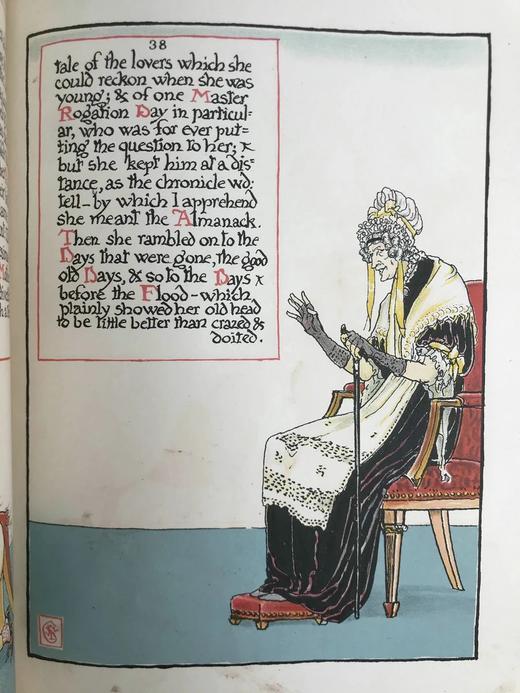 38
tale of the lovers which she
could reckon when she was
young; & of one Master
Rogation Day in particul=
ar, who was for ever put=
ting the question to her; &
but she kept him at a dis=
tance, as the chronicle wd.
tell – by which I apprehend
she meant the Almanack.
Then she rambled on to the
Days that were gone, the good
old Days, & so to the Days &
before the Flood – which
plainly showed her old head
to be little better than crazed &
doited.